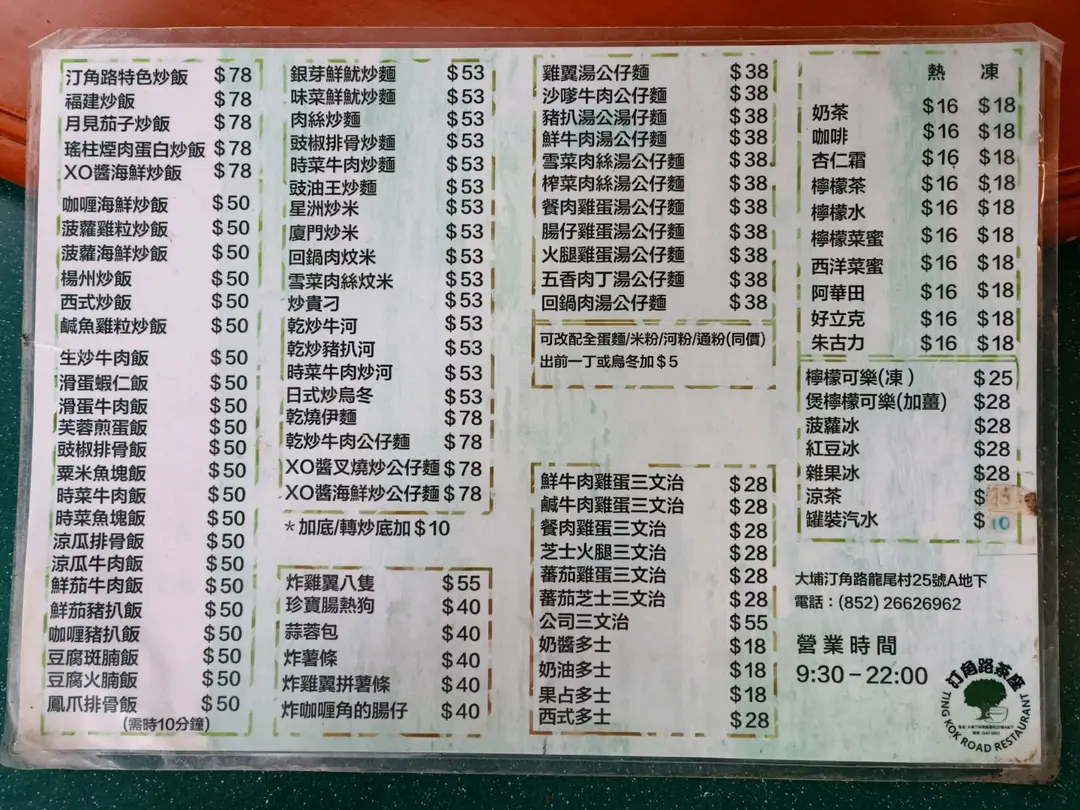 汀角路特色炒飯 $78
福建炒飯 $78
月見茄子炒飯 $78
瑤柱煙肉蛋白炒飯 $78
XO醬海鮮炒飯 $78
咖喱海鮮炒飯 $50
菠蘿雞粒炒飯 $50
菠蘿海鮮炒飯 $50
楊州炒飯 $50
西式炒飯 $50
鹹魚雞粒炒飯 $50
生炒牛肉飯 $50
滑蛋蝦仁飯 $50
滑蛋牛肉飯 $50
芙蓉煎蛋飯 $50
豉椒排骨飯 $50
粟米魚塊飯 $50
時菜牛肉飯 $50
時菜魚塊飯 $50
涼瓜排骨飯 $50
涼瓜牛肉飯 $50
鮮茄牛肉飯 $50
鮮茄豬扒飯 $50
咖喱豬扒飯 $50
豆腐斑腩飯 $50
豆腐火腩飯 $50
鳳爪排骨飯 $50
(需時10分鐘)
銀芽鮮魷炒麵 $53
味菜鮮魷炒麵 $53
肉絲炒麵 $53
豉椒排骨炒麵 $53
時菜牛肉炒麵 $53
豉油王炒麵 $53
星洲炒米 $53
廈門炒米 $53
回鍋肉炆米 $53
雪菜肉絲炆米 $53
炒貴刁 $53
乾炒牛河 $53
乾炒豬扒河 $53
時菜牛肉炒河 $53
日式炒烏冬 $53
乾燒伊麵 $78
乾炒牛肉公仔麵 $78
XO醬叉燒炒公仔麵 $78
XO醬海鮮炒公仔麵 $78
*加底/轉炒底加$10
炸雞翼八隻 $55
珍寶腸熱狗 $40
蒜蓉包 $40
炸薯條 $40
炸雞翼拼薯條 $40
炸咖喱角的腸仔 $40
雞翼湯公仔麵 $38
沙嗲牛肉公仔麵 $38
豬扒湯公湯仔麵 $38
鮮牛肉湯公仔麵 $38
雪菜肉絲湯公仔麵 $38
榨菜肉絲湯公仔麵 $38
餐肉雞蛋湯公仔麵 $38
腸仔雞蛋湯公仔麵 $38
火腿雞蛋湯公仔麵 $38
五香肉丁湯公仔麵 $38
回鍋肉湯公仔麵 $38
可改配全蛋麵/米粉/河粉/通粉(同價)
出前一丁或烏冬加$5
鮮牛肉雞蛋三文治 $28
鹹牛肉雞蛋三文治 $28
餐肉雞蛋三文治 $28
芝士火腿三文治 $28
蕃茄雞蛋三文治 $28
蕃茄芝士三文治 $28
公司三文治 $55
奶醬多士 $18
奶油多士 $18
果占多士 $18
西式多士 $28
熱 凍
奶茶 $16 $18
咖啡 $16 $18
杏仁霜 $16 $18
檸檬茶 $16 $18
檸檬水 $16 $18
檸檬菜蜜 $16 $18
西洋菜蜜 $16 $18
阿華田 $16 $18
好立克 $16 $18
朱古力 $16 $18
檸檬可樂(凍) $25
煲檸檬可樂(加薑) $28
菠蘿冰 $28
紅豆冰 $28
雜果冰 $28
涼茶 $
罐裝汽水 $10
大埔汀角路龍尾村25號A地下
電話：(852) 26626962
營業時間
9:30－22:00
汀角路茶座
TING KOK ROAD RESTAURANT